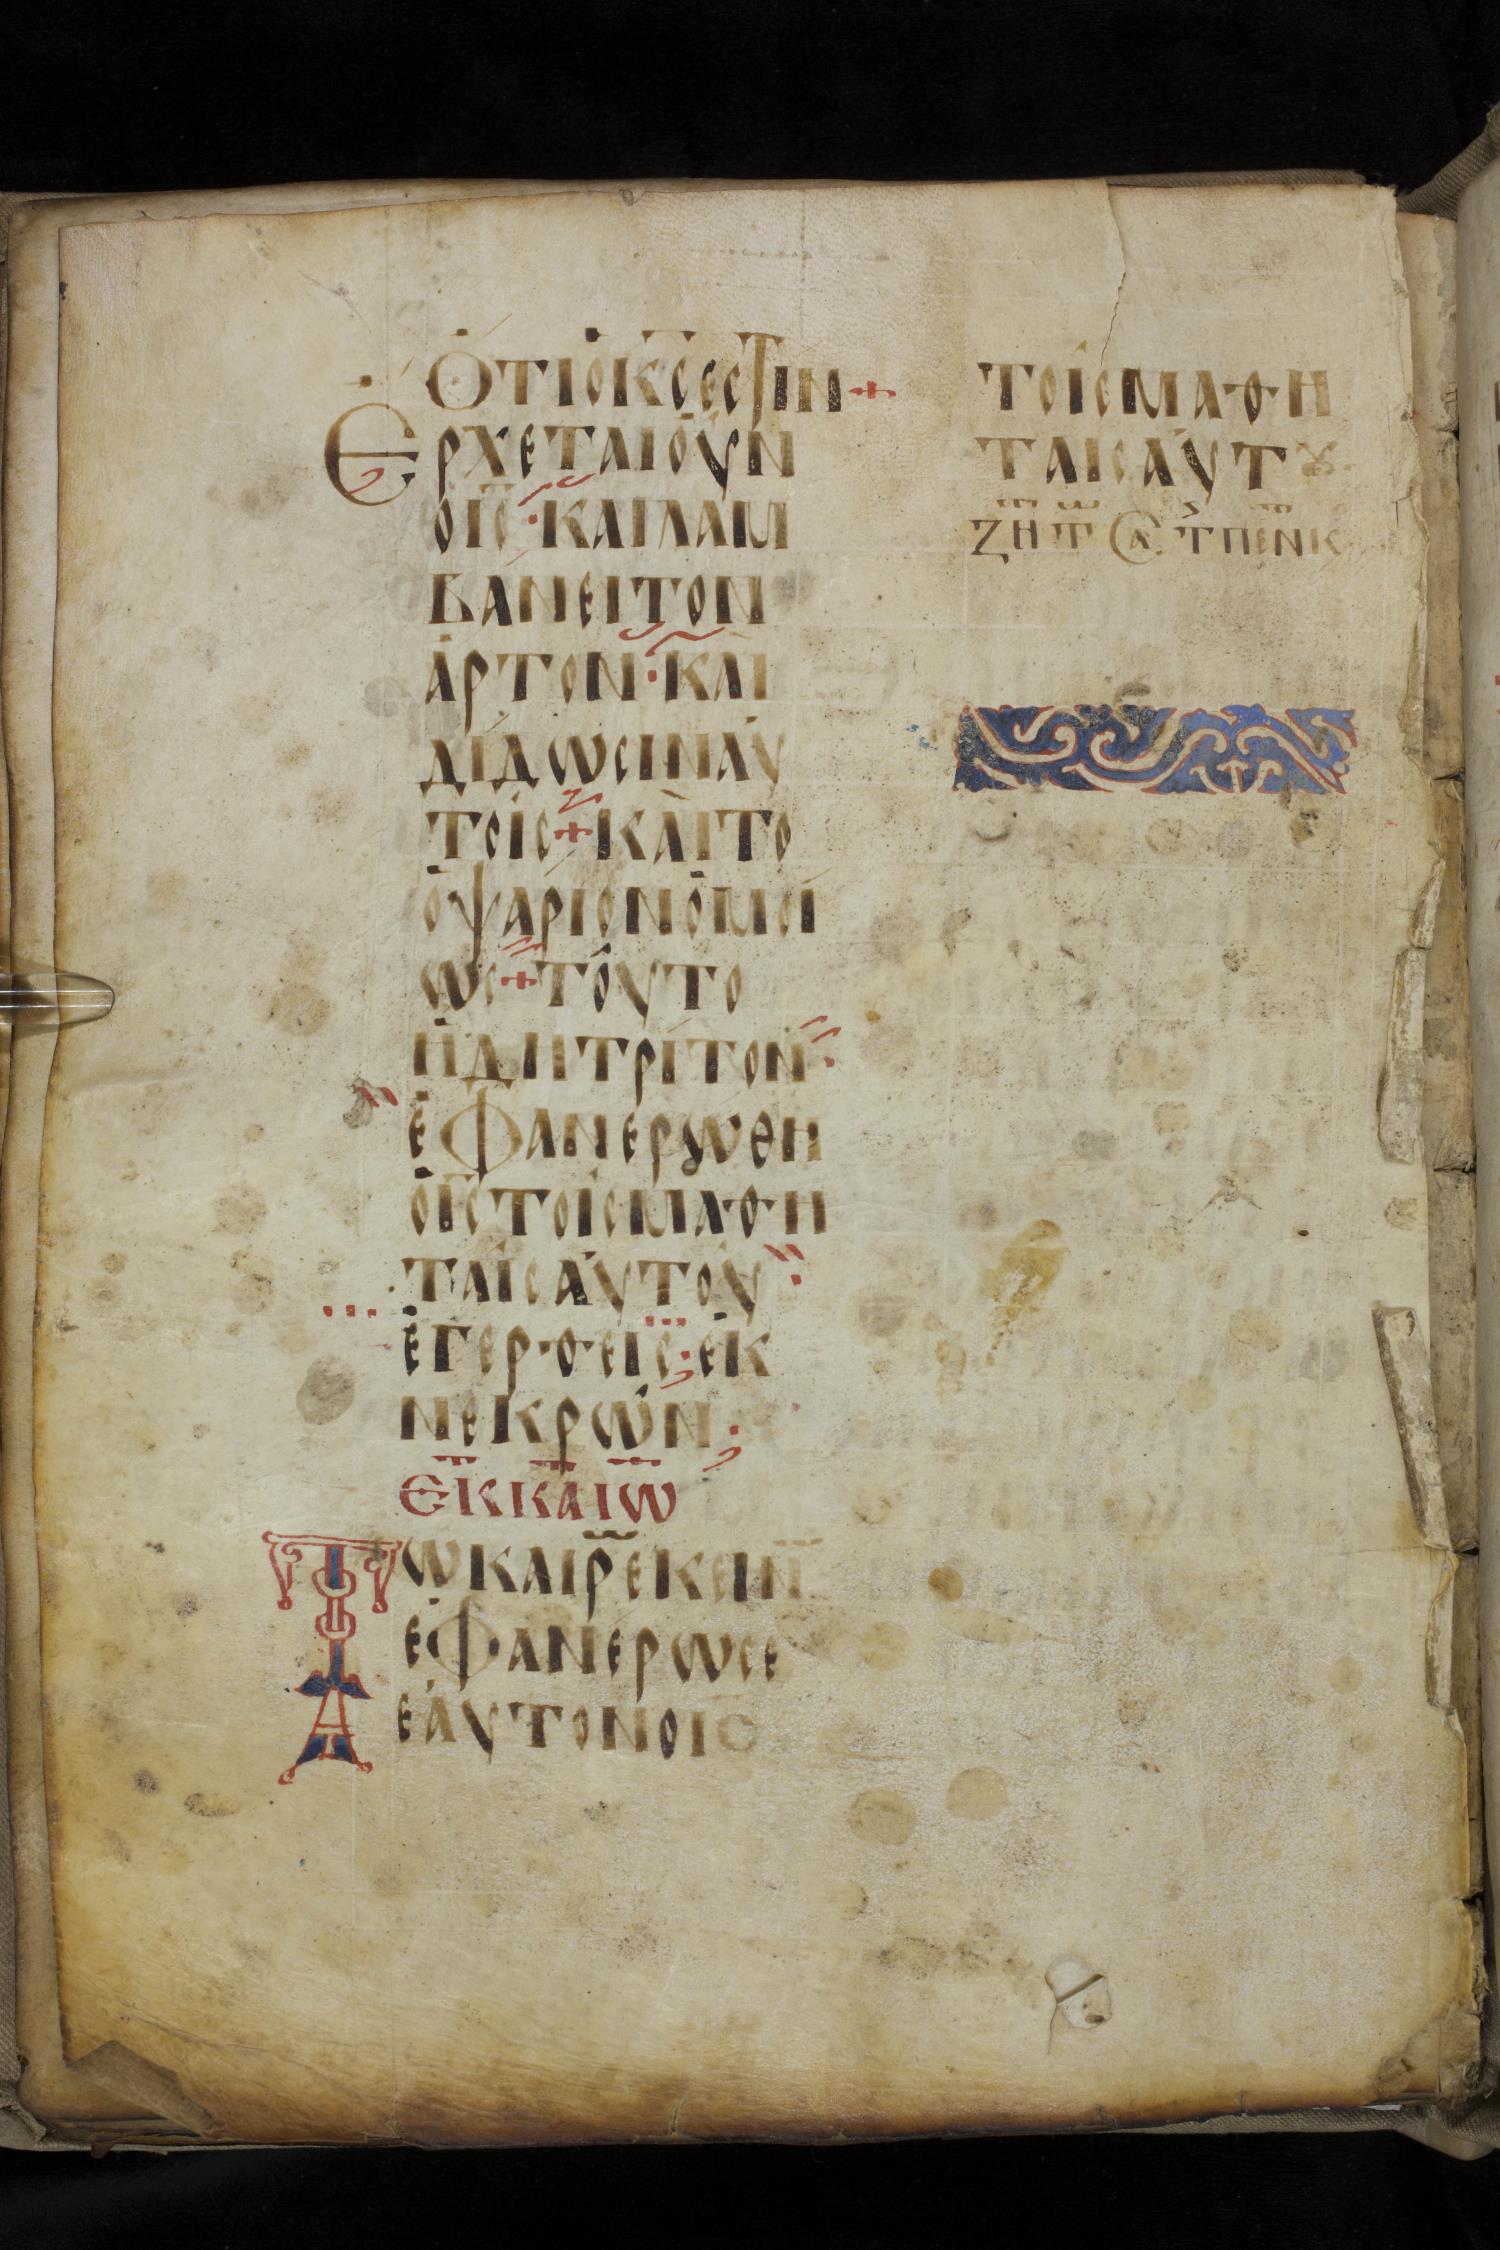 ὍΤΙΟΚ̅Ϲ̅ΕϹΤΙΝ+
ΕΡΧΕΤΑΙΟΥΝ
ΟΙ̅Ϲ̅·ΚΑΙΛΑΜ
ΒΑΝΕΙΤΟΝ
ΑΡΤΟΝ·ΚΑΙ
ΔΙΔΩϹΙΝΑΥ
ΤΟΙϹ+ΚΑΙΤΟ
ΟΨΑΡΙΟΝΟΜΟΙ
ΩϹ+ΤΟΥΤΟ
ΗΔΗΤΡΙΤΟΝ·
ΕΦΑΝΕΡΩΘΗ
ΟΙ̅Ϲ̅ΤΟΙϹΜΑΘΗ
ΤΑΙϹΑΥΤΟΥ·
ΕΓΕΡΘΕΙϹ·ΕΚ
ΝΕΚΡΩΝ·
ΕΚΚΑΙΩ
ΤΩΚΑΙΡΕΚΕΙΝ
ΕΦΑΝΕΡΩϹΕ
ΕΑΥΤΟΝΟΙ̅Ϲ̅
ΤΟΙϹΜΑΘΗ
ΤΑΙϹΑΥΤȢ